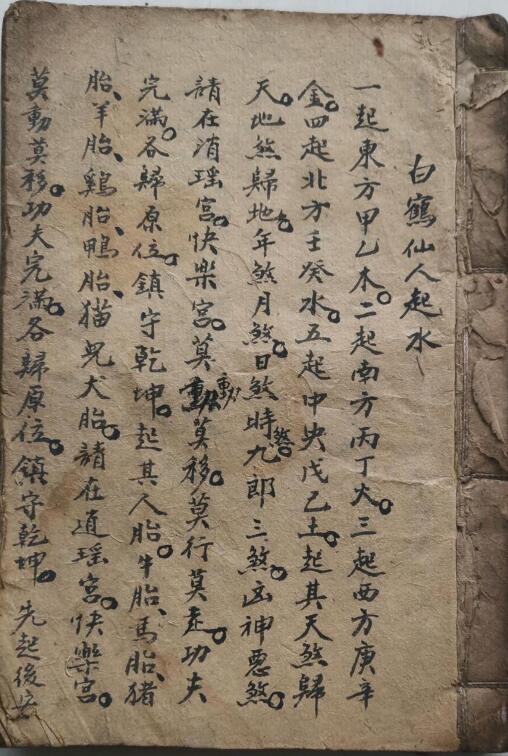 白鶴仙人起水
一起東方甲乙木。二起南方丙丁火。三起西方庚辛
金。四起北方壬癸水。五起中央戊己土。起其天煞歸
天。地煞歸地。年煞月煞。日煞時煞。九郎三煞。凶神惡煞。
請在消瑶宫。快樂宫。莫動莫移。莫行莫走。功夫
完滿。各歸原位。鎮守乾坤。起其人胎。牛胎、馬胎、猪
胎、羊胎、鷄胎、鴨胎、猫兒犬胎。請在逍瑶宫。快樂宫。
莫動莫移。功夫完滿。各歸原位。鎮守乾坤。先起後安